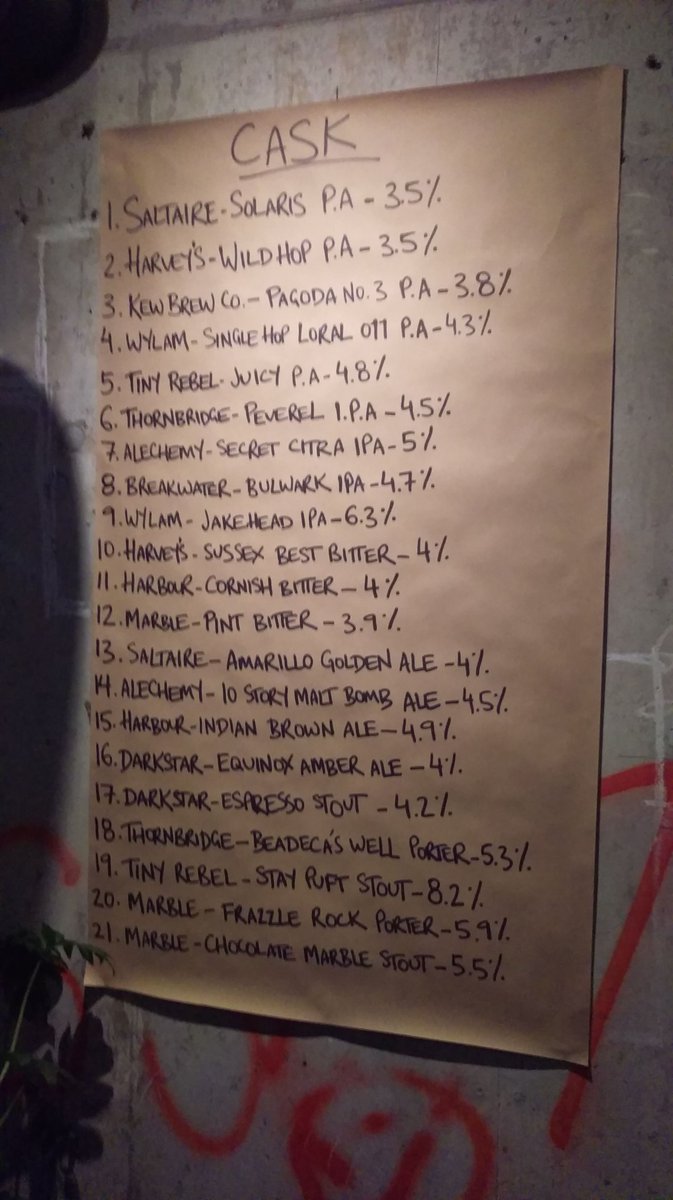 CASK
1. SALTAIRE - SOLARIS P.A - 3.5%
2. HARVEY'S - WILD HOP P.A - 3.5%
3. KEW BREW CO. - PAGODA NO. 3 P.A - 3.8%
4. WYLAM - SINGLE HOP LORAL 011 P.A - 4.3%
5. TINY REBEL - JUICY P.A - 4.8%
6. THORNBRIDGE - PEVEREL I.P.A - 4.5%
7. ALECHEMY - SECRET CITRA IPA - 5%
8. BREAKWATER - BULWARK IPA - 4.7%
9. WYLAM - JAKEHEAD IPA - 6.3%
10. HARVEY'S - SUSSEX BEST BITTER - 4%
11. HARBOUR - CORNISH BITTER - 4%
12. MARBLE - PINT BITTER - 3.9%
13. SALTAIRE - AMARILLO GOLDEN ALE - 4%
14. ALECHEMY - 10 STORY MALT BOMB ALE - 4.5%
15. HARBOUR - INDIAN BROWN ALE - 4.9%
16. DARKSTAR - EQUINOX AMBER ALE - 4%
17. DARKSTAR - ESPRESSO STOUT - 4.2%
18. THORNBRIDGE - BEADECA'S WELL PORTER - 5.3%
19. TINY REBEL - STAY PUFT STOUT - 8.2%
20. MARBLE - FRAZZLE ROCK PORTER - 5.9%
21. MARBLE - CHOCOLATE MARBLE STOUT - 5.5%